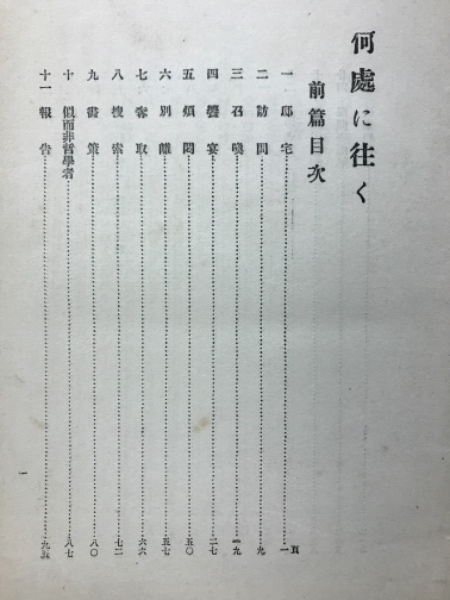 何處に往く
前篇目次
頁
一 邸宅 一
二 訪問 九
三 召喚 一九
四 饗宴 二七
五 煩悶 五〇
六 別離 五七
七 奪取 六六
八 搜索 七二
九 畫策 八〇
十 似而非哲學者 八七
十一 報告 九五
一